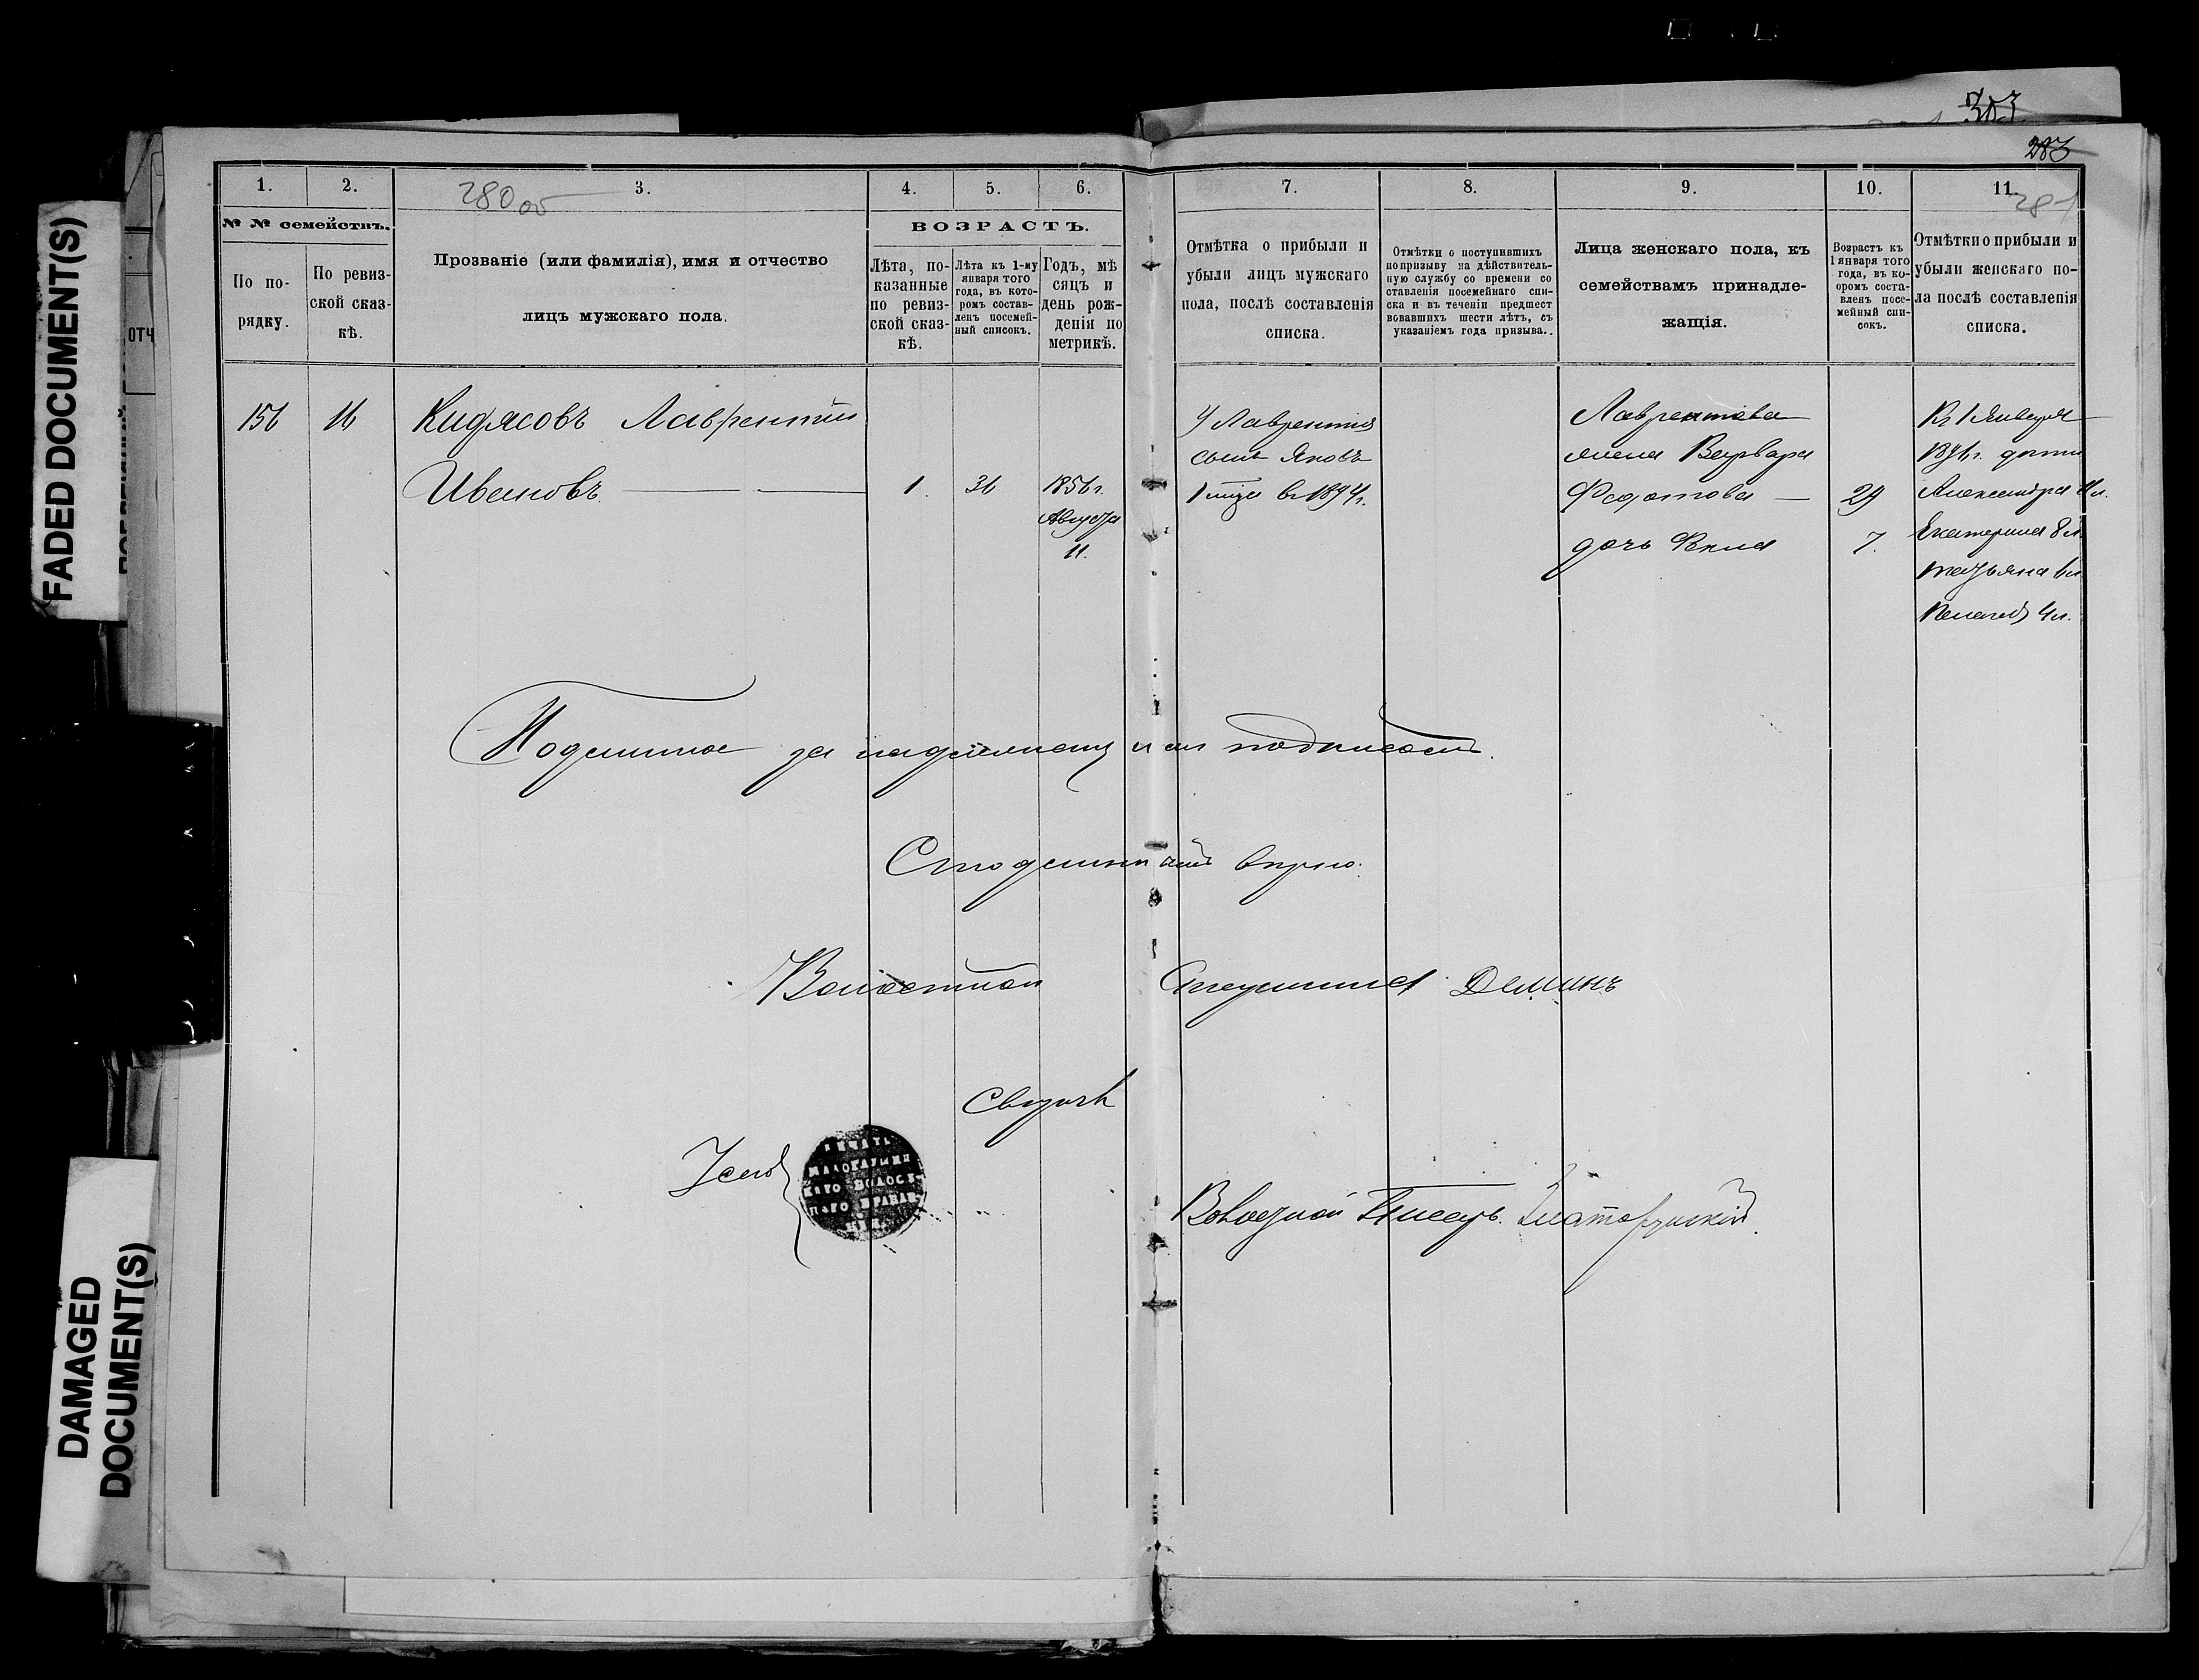 FADED DOCUMENT(S)
DAMAGED DOCUMENT(S)
ОТЧ
303
283
280 об
281
1.
2.
3.
4.
5.
6.
7.
8.
9.
10.
11.
№ № семействъ.
По порядку.
По ревизской сказкѣ.
Прозваніе (или фамилія), имя и отчество
лицъ мужскаго пола.
ВОЗРАСТЪ.
Лѣта, по-
казанные
по ревиз-
ской сказ-
кѣ.
Лѣта къ 1-му
января того
года, въ кото-
ромъ состав-
ленъ посемей-
ный списокъ.
Годъ, мѣ
сяцъ и
день рож-
денія по
метрикѣ.
Отмѣтка о прибыли и
убыли лицъ мужскаго
пола, послѣ составленія
списка.
Отмѣтки о поступившихъ
по призыву на дѣйствитель-
ную службу со времени со
ставленія посемейнаго спи-
ска и въ теченіи предшест
вовавшихъ шести лѣтъ, съ
указаніемъ года призыва.
Лица женскаго пола, къ
семействамъ принадле-
жащія.
Возрастъ къ
1 января того
года, въ ко-
торомъ соста-
вленъ посе-
мейный спи-
сокъ.
Отмѣтки о прибыли и
убыли женскаго по-
ла послѣ составленія
списка.
156
16
Кидясовъ Лаврентій
Ивановъ
1.
36
1856 г.
Августа
11.
У Лаврентія
сынъ Яковъ
въ 1894 г.
Лаврентова
жена Варвара
Федотова — 29
дочь Фекла 7.
Къ 1 Января
1896 г. дочери
Александра 11 л.
Екатерина 8 л.
Татьяна 6 л.
Пелагея 4 л.
Подлинное за надлежащими подписями.
Съ подлиннымъ вѣрно:
Волостной Старшина Деминъ
Свѣрялъ
ПЕЧАТЬ
ВОЛОСТ-
НАГО ПРАВЛЕ-
НІЯ
Писарь